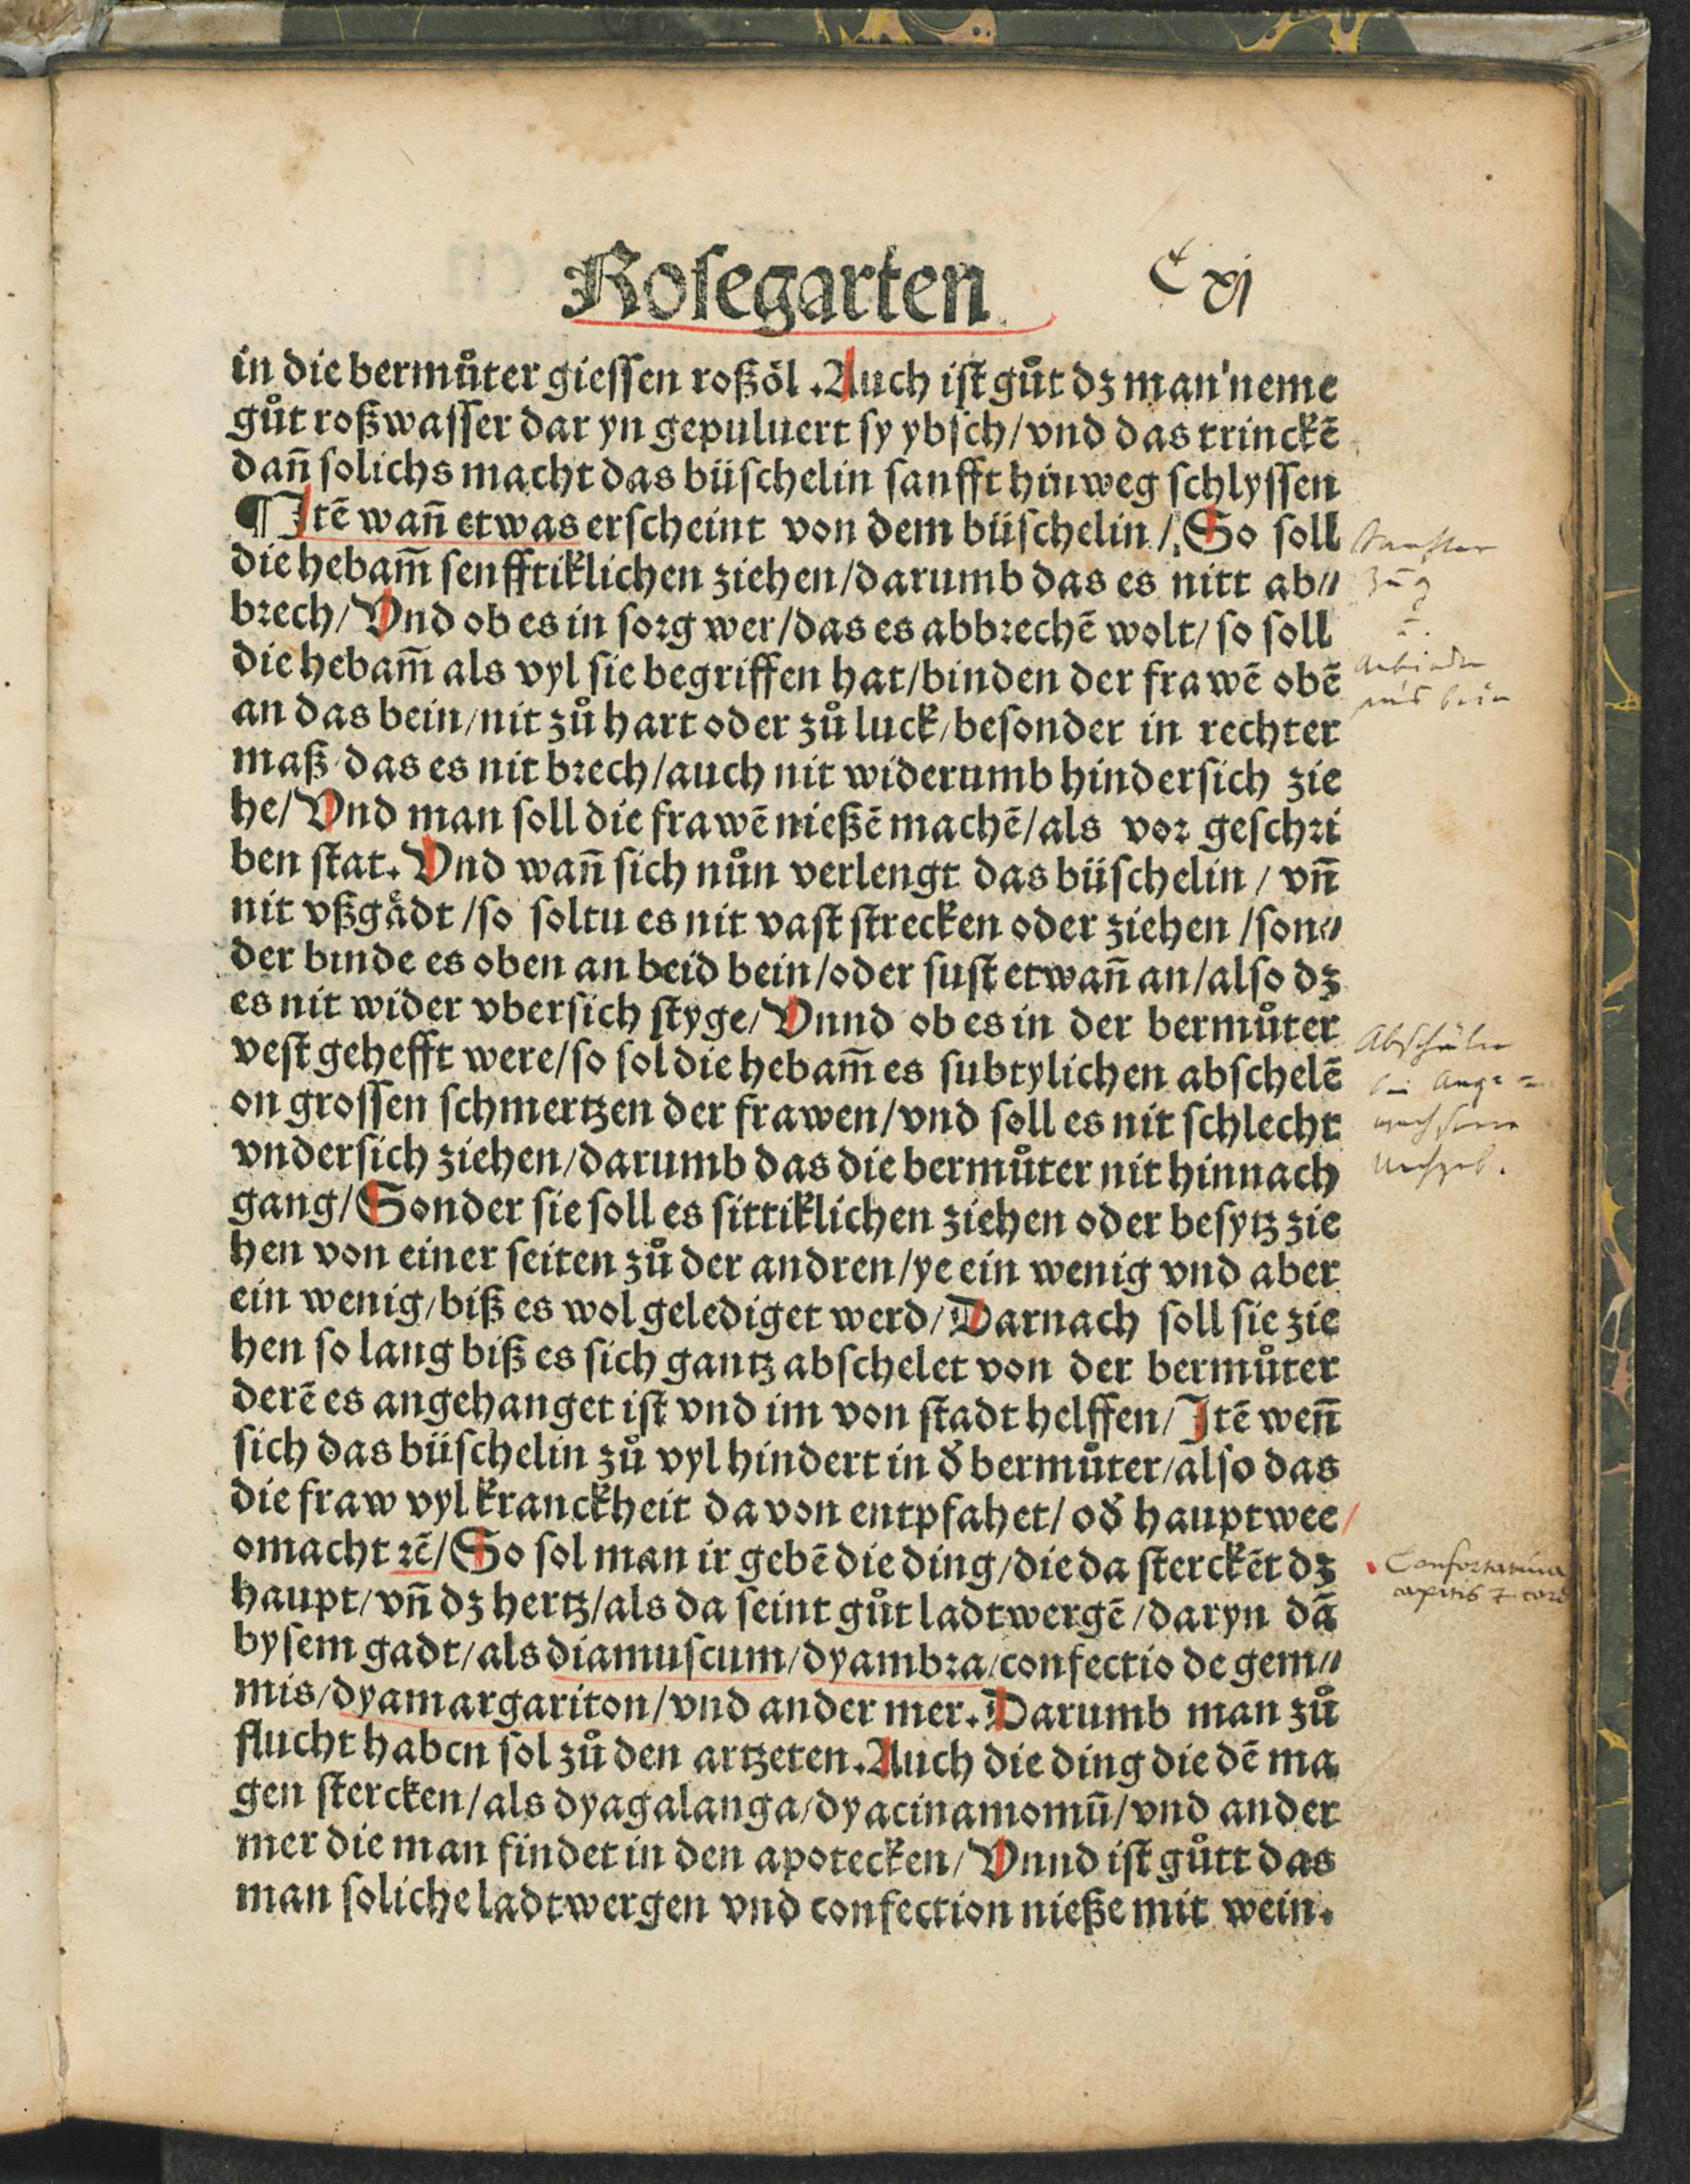 Rosegarten
in die bermůter giessen roßöl. Auch ist gůt dz man neme
gůt roßwasser dar yn gepuluert sy ybsch/vnd das trinckē
dañ solichs macht das büschelin sanfft hinweg schlyssen
¶ Itē wañ etwas erscheint von dem büschelin/ So soll
die hebam̄ senfftiklichen ziehen/darumb das es nitt ab⸗
brech/Vnd ob es in sorg wer/das es abbrechē wolt/so soll
die hebam̄ als vyl sie begriffen hat/binden der frawē obē
an das bein/nit zů hart oder zů luck/besonder in rechter
maß das es nit brech/auch nit widerumb hindersich zie
he/Vnd man soll die frawē nießē machē/als vor geschri
ben stat. Vnd wañ sich nůn verlengt das büschelin/ vñ
nit vßgådt/so soltu es nit vast strecken oder ziehen/son⸗
der binde es oben an beid bein/oder sust etwañ an/also dz
es nit wider vbersich styge/Vnnd ob es in der bermůter
vest gehefft were/so sol die hebam̄ es subtylichen abschelē
on grossen schmertzen der frawen/vnd soll es nit schlecht
vndersich ziehen/darumb das die bermůter nit hinnach
gang/Sonder sie soll es sittiklichen ziehen oder besytz zie
hen von einer seiten zů der andren/ye ein wenig vnd aber
ein wenig/biß es wol gelediget werd/Darnach soll sie zie
hen so lang biß es sich gantz abschelet von der bermůter
derē es angehanget ist vnd im von stadt helffen/Itē weñ
sich das büschelin zů vyl hindert in d̕ bermůter/also das
die fraw vyl kranckheit da von entpfahet/ od̕ hauptwee/
omacht ꝛc̄/So sol man ir gebē die ding/die da sterckēt dz
haupt/vñ dz hertz/als da seint gůt ladtwergē/daryn dā
bysem gadt/als diamuscum/dyambra/confectio de gem⸗
mis/dyamargariton/vnd ander mer. Darumb man zů
flucht haben sol zů den artzeten. Auch die ding die dē ma
gen stercken/als dyagalanga/dyacinamomū/vnd ander
mer die man findet in den apotecken/Vnnd ist gůtt das
man soliche ladtwergen vnd confection nieße mit wein.
Abschälen
Confortativa
capitis